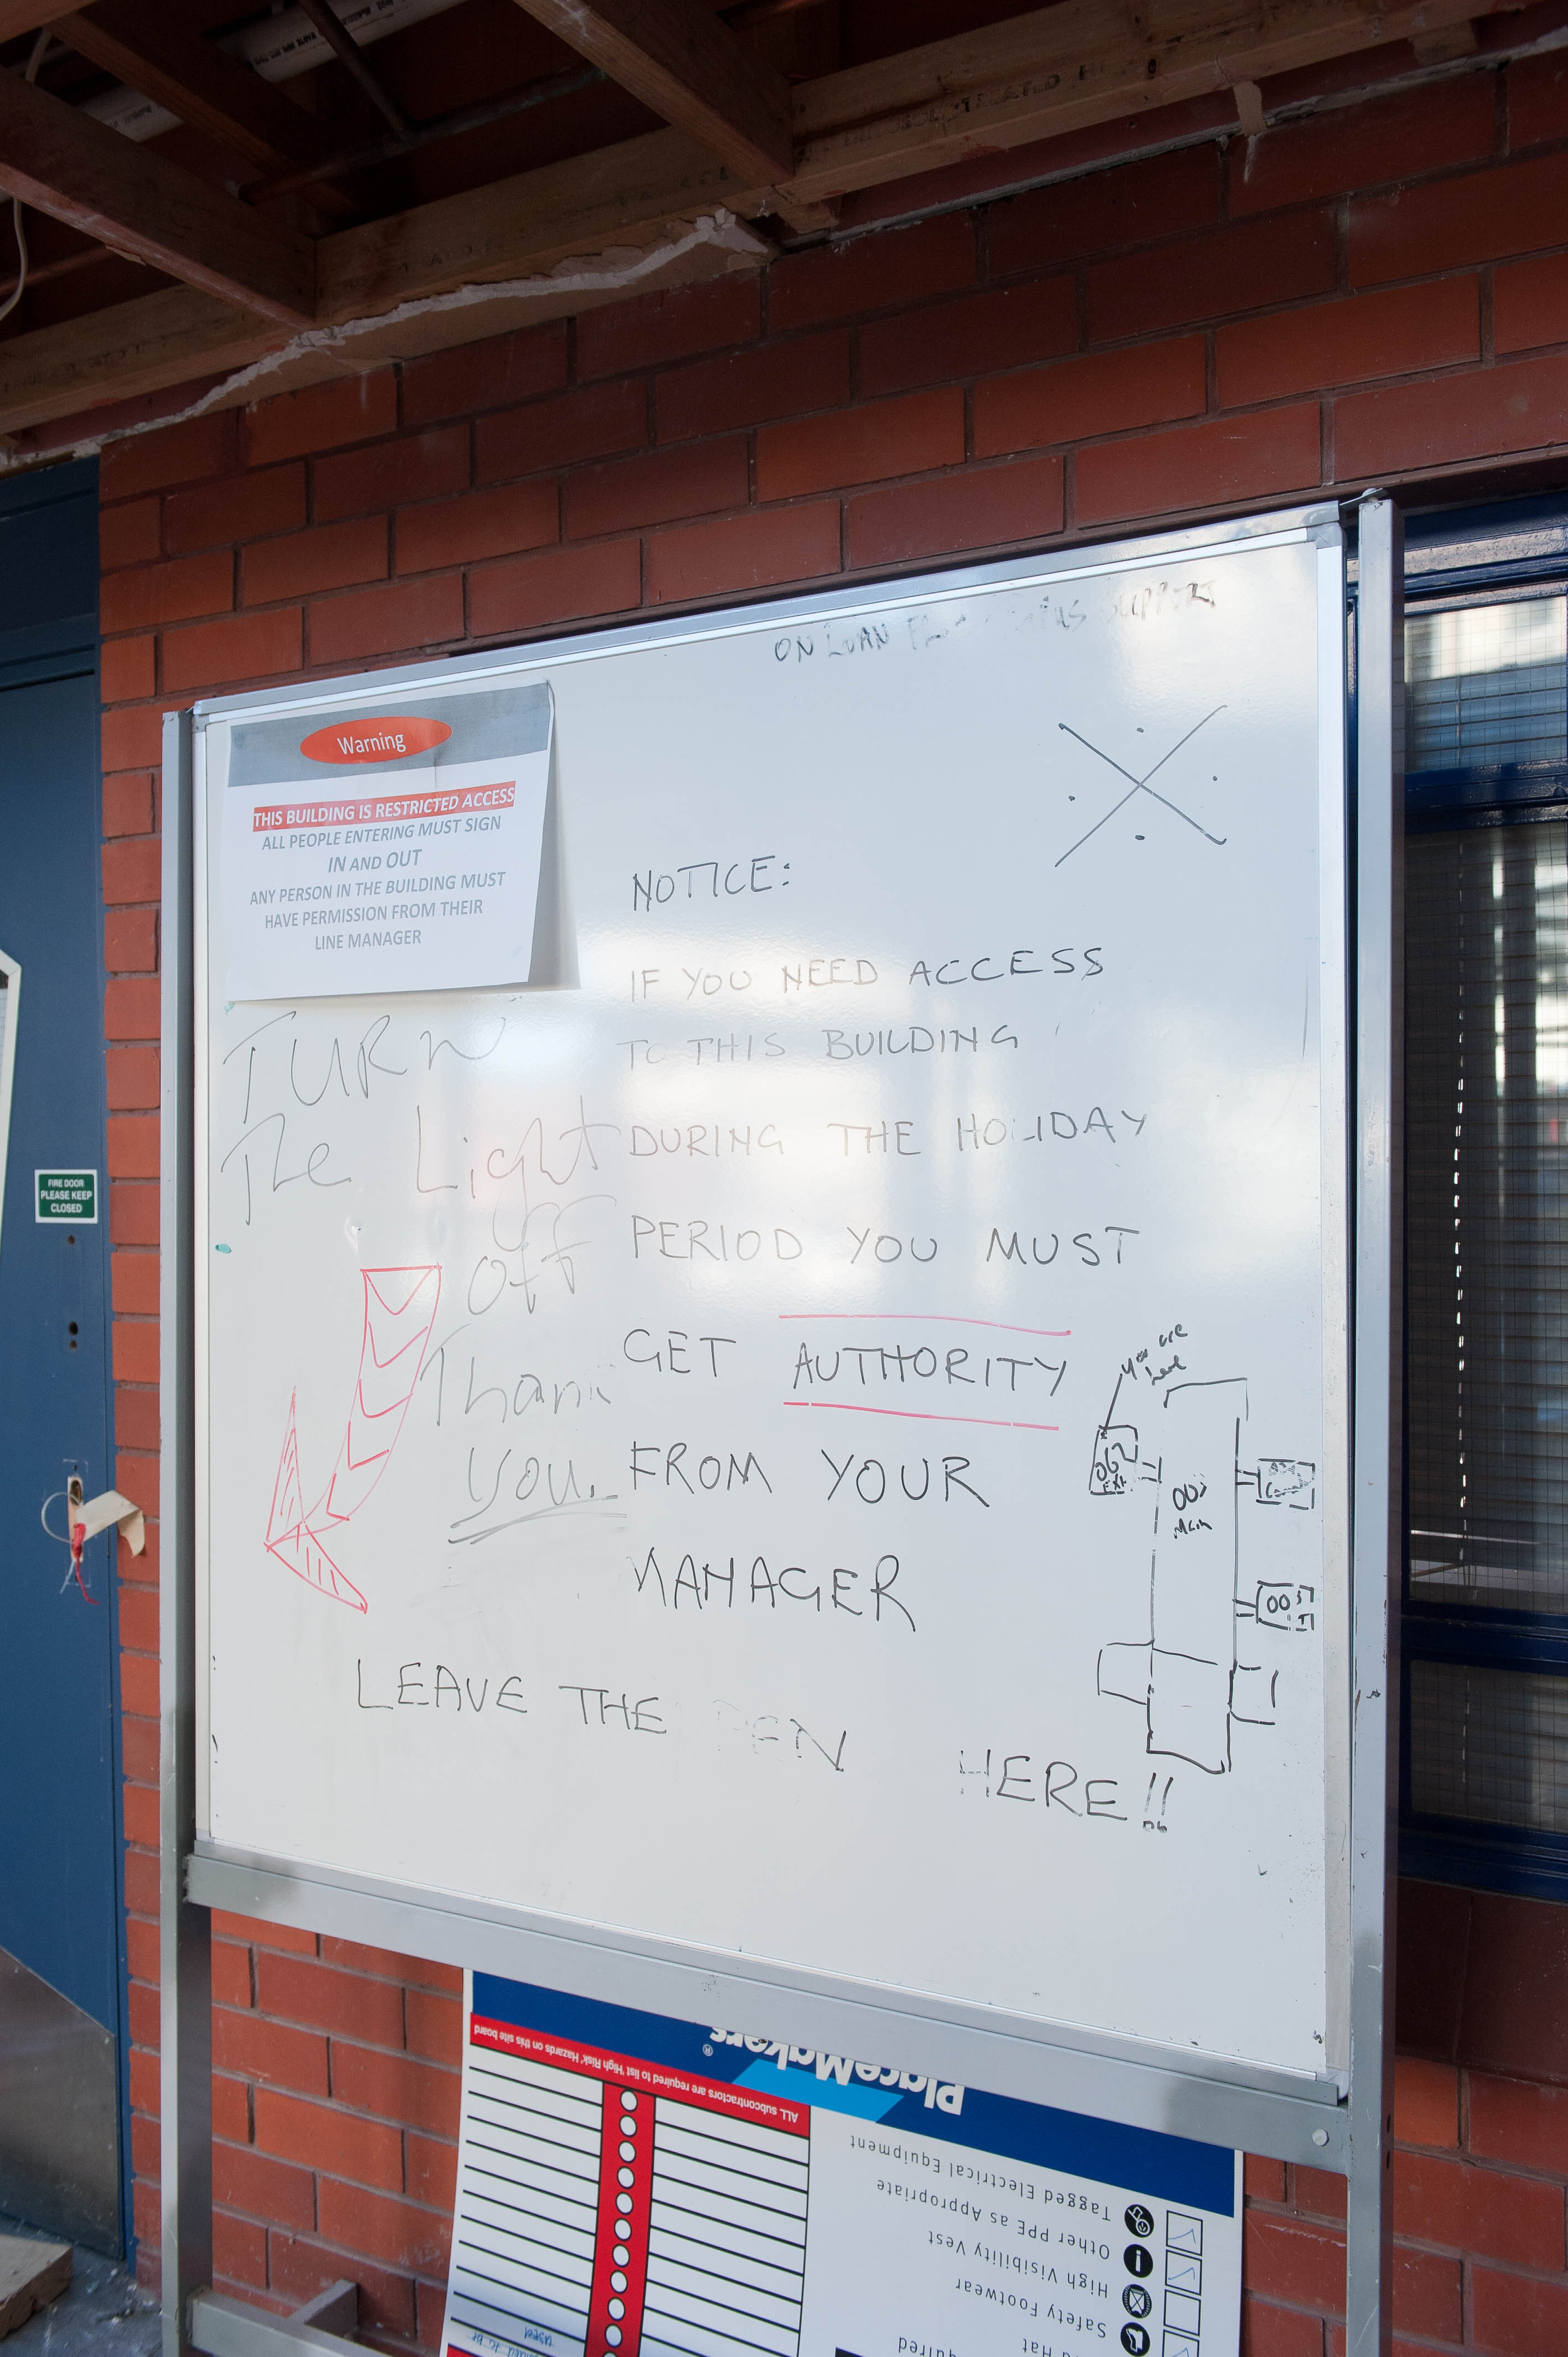 ON LOAN SUPPORT
Warning
THIS BUILDING IS RESTRICTED ACCESS
ALL PEOPLE ENTERING MUST SIGN
IN AND OUT
ANY PERSON IN THE BUILDING MUST
HAVE PERMISSION FROM THEIR
LINE MANAGER
NOTICE:
IF YOU NEED ACCESS
TO THIS BUILDING
DURING THE HOLIDAY
PERIOD YOU MUST
GET AUTHORITY
FROM YOUR
MANAGER
TURN
The Light
Off
Thank
You.
You are
here
062
Ext
Main
LEAVE THE PEN HERE!!
FIRE DOOR
PLEASE KEEP
CLOSED
PlaceMakers®
ALL subcontractors are required to list 'High Risk' Hazards on this site board
Tagged Electrical Equipment
Other PPE as Appropriate
High Visibility Vest
Safety Footwear
Hat
used